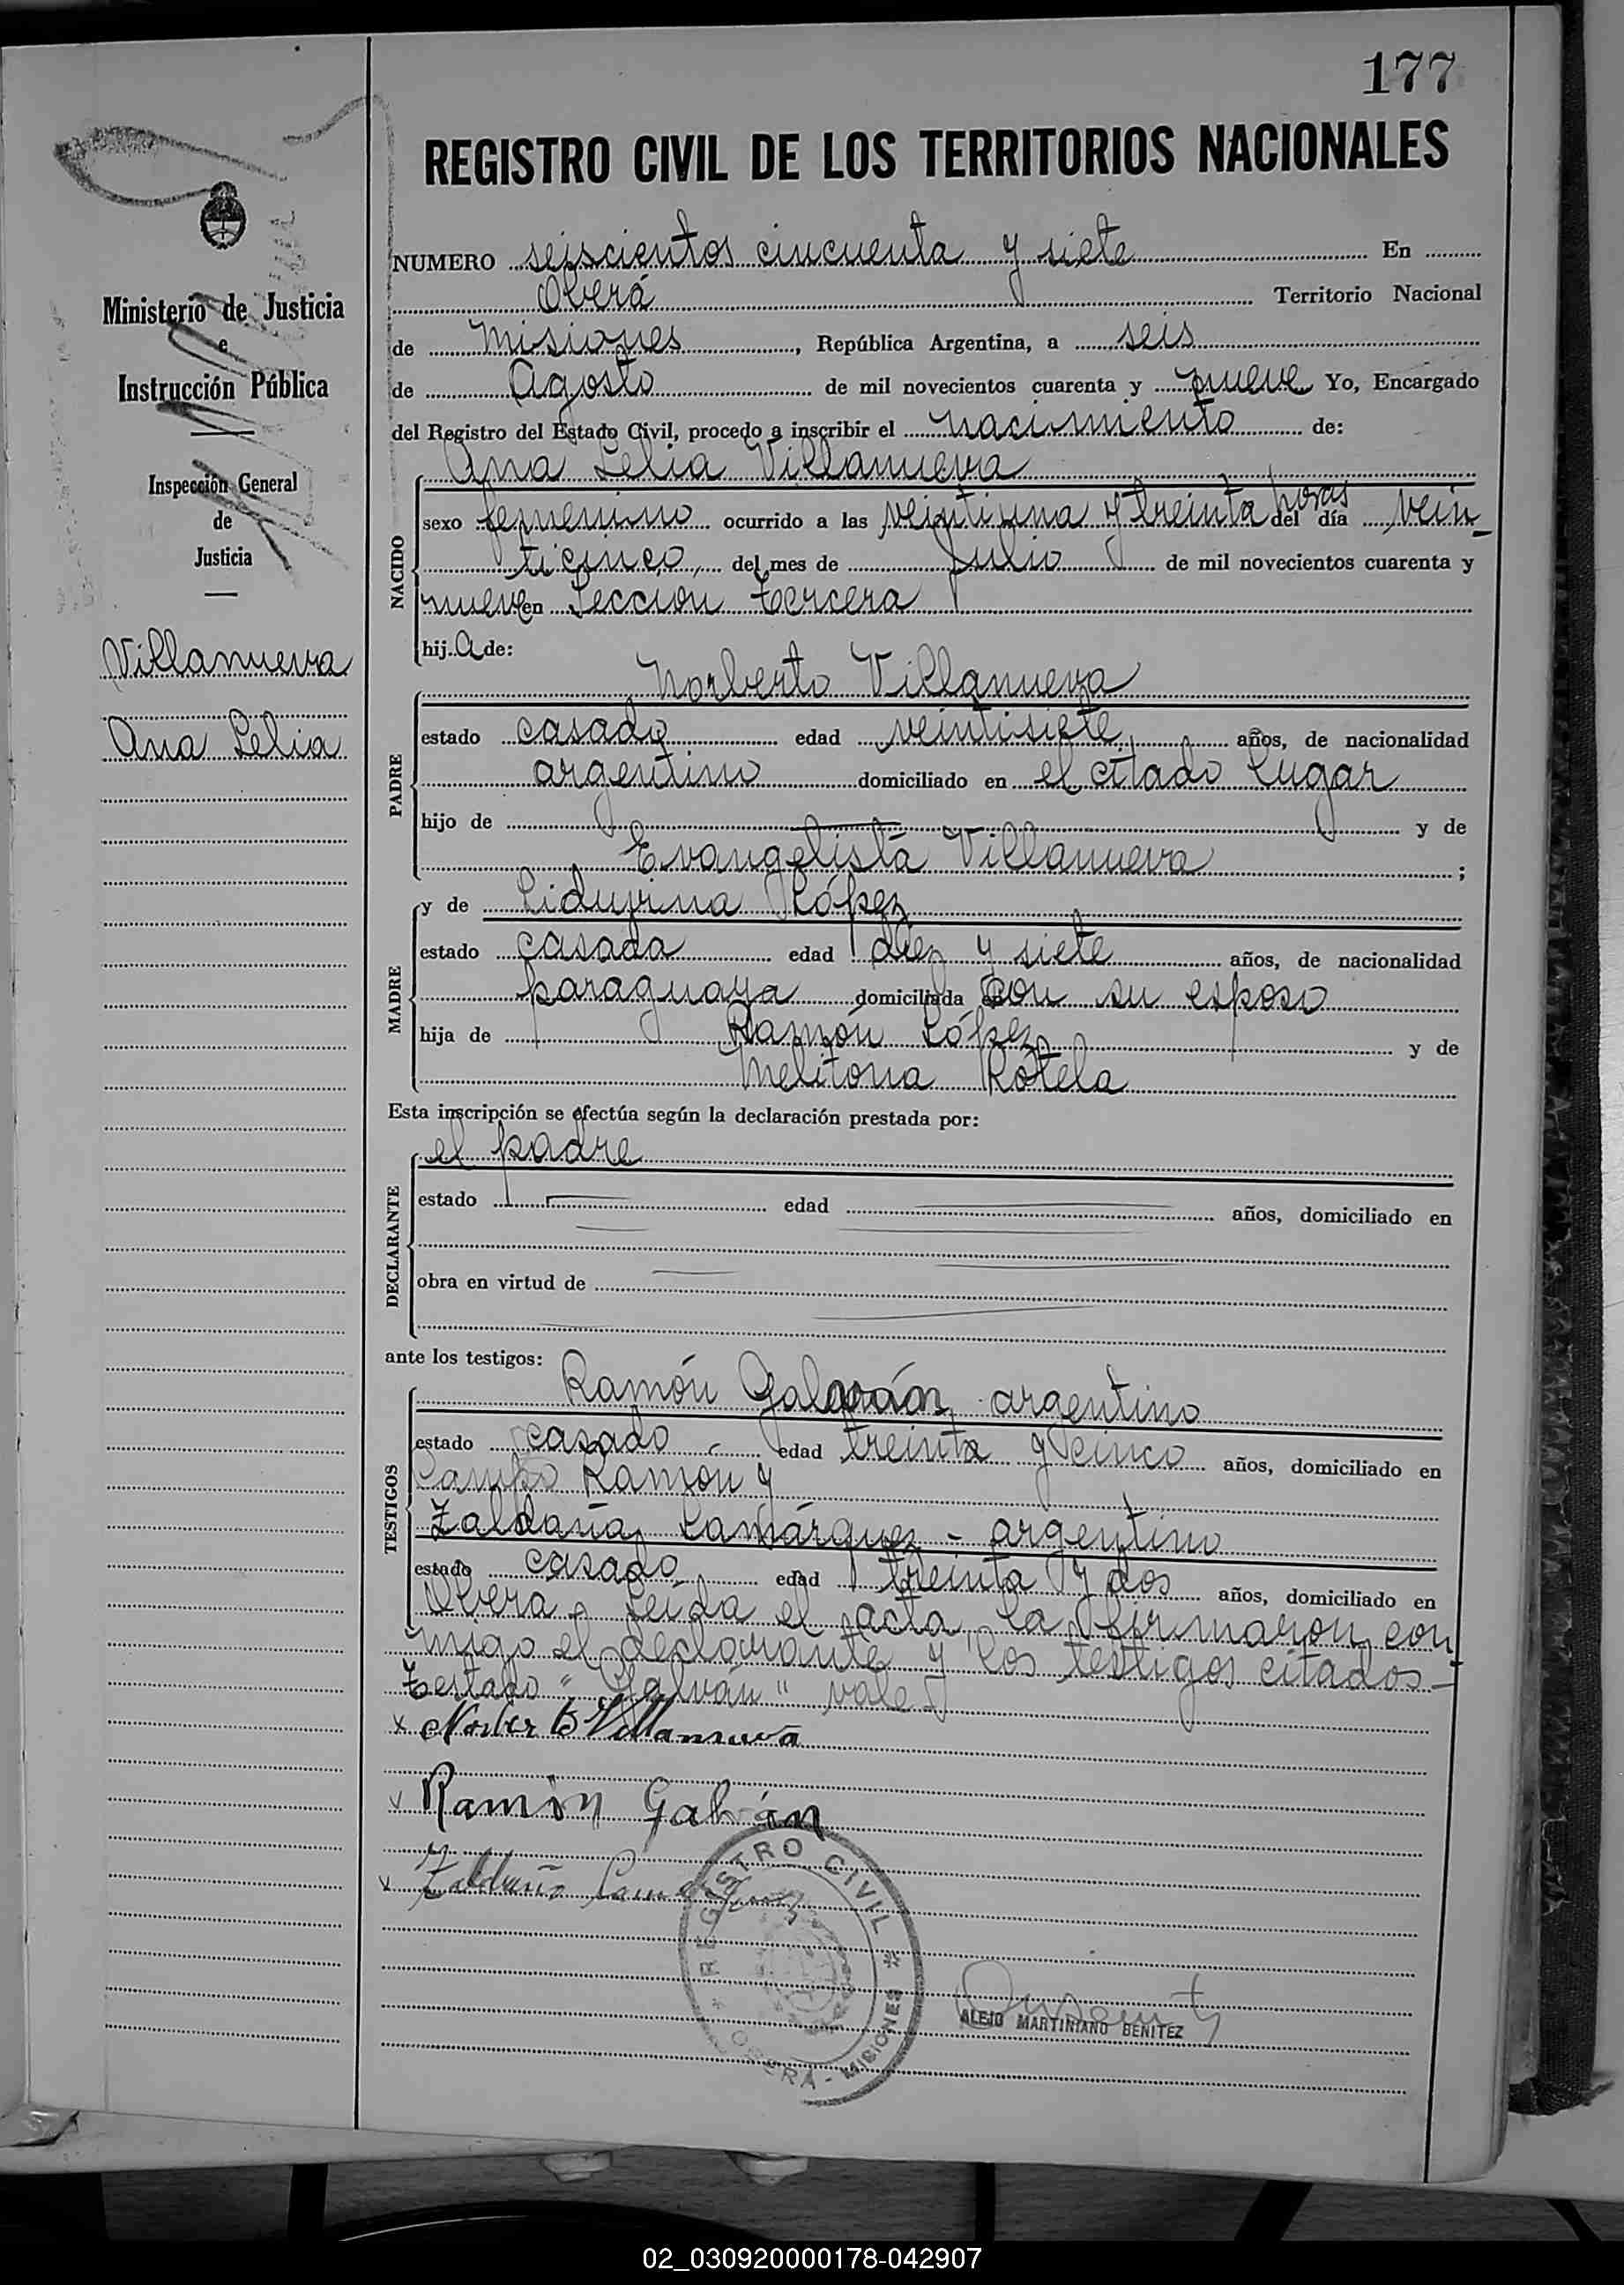 177
REGISTRO CIVIL DE LOS TERRITORIOS NACIONALES
Ministerio de Justicia
e
Instrucción Pública
Inspección General
de
Justicia
Villanueva
Ana Lelia
NUMERO seiscientos cincuenta y siete En
Oberá Territorio Nacional
de Misiones, República Argentina, a seis
de Agosto de mil novecientos cuarenta y nueve Yo, Encargado
del Registro del Estado Civil, procedo a inscribir el nacimiento de:
Ana Lelia Villanueva
NACIDO
sexo femenino ocurrido a las veintiuna y treinta horas del día vein
ticinco, del mes de Julio de mil novecientos cuarenta y
nueve en Sección Tercera
hija de:
Norberto Villanueva
PADRE
estado casado edad veintisiete años, de nacionalidad
argentino domiciliado en el citado lugar
hijo de y de
Evangelista Villanueva ;
MADRE
y de Liduvina López
estado casada edad diez y siete años, de nacionalidad
paraguaya domiciliada con su esposo
hija de Ramón López y de
Melitona Rotela
Esta inscripción se efectúa según la declaración prestada por:
DECLARANTE
el padre
estado edad años, domiciliado en
obra en virtud de
ante los testigos:
TESTIGOS
Ramón Galván argentino
estado casado edad treinta y cinco años, domiciliado en
Campo Ramón y
Zaldaña Lamárquez - argentino
estado casado edad treinta y dos años, domiciliado en
Oberá. Leída el acta, la firmaron con
migo el declarante y los testigos citados -
Testado "Galván" vale
x Norberto Villanueva
x Ramón Galván
x Zaldaña
REGISTRO CIVIL
* OBERÁ - MISIONES *
ALEJO MARTINIANO BENITEZ
02_030920000178-042907